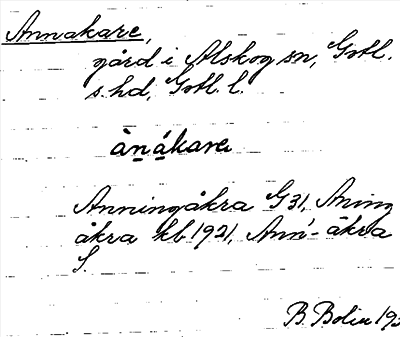 Annakare,
gård i Alskog sn, Gotl.
s. hd, Gotl. l.
ànákare
Anningåkra G31, Aning
åkra kb 1921, Ann'-åkra
S.
B. Bolin 193